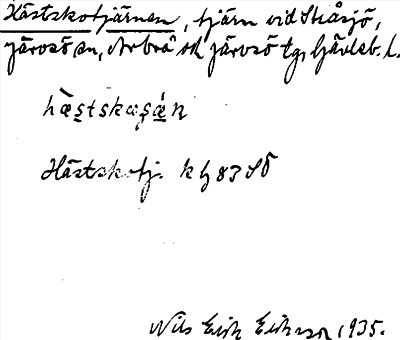 Hästskotjärnen, tjärn vid Stråsjö,
Järvsö sn, Arbrå och Järvsö tg, Gävleb. l.
hæstskoʂæ̀n
Hästskotj. k h 83 SO
Nils Erik Eriksson 1935.